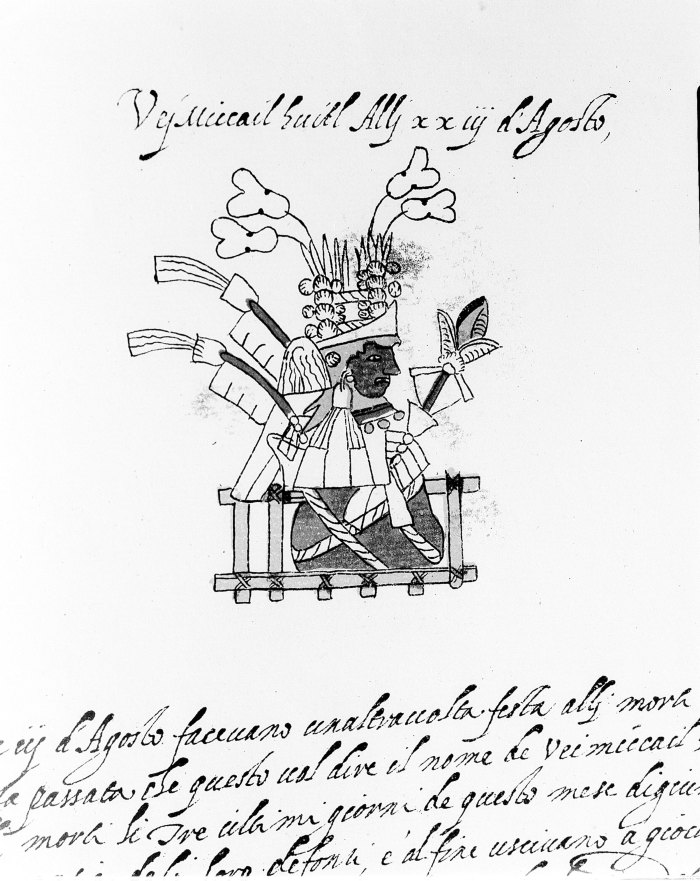 Vej Miccail huitl Allj xxiij d'Agosto,
iij d'Agosto facevano unaltravolta festa allj morti
la passata che questo vol dire il nome de Vei miccail
morti li Tre ultimi giorni de questo mese digiu
deli loro defonti, e al fine uscivano a gioc